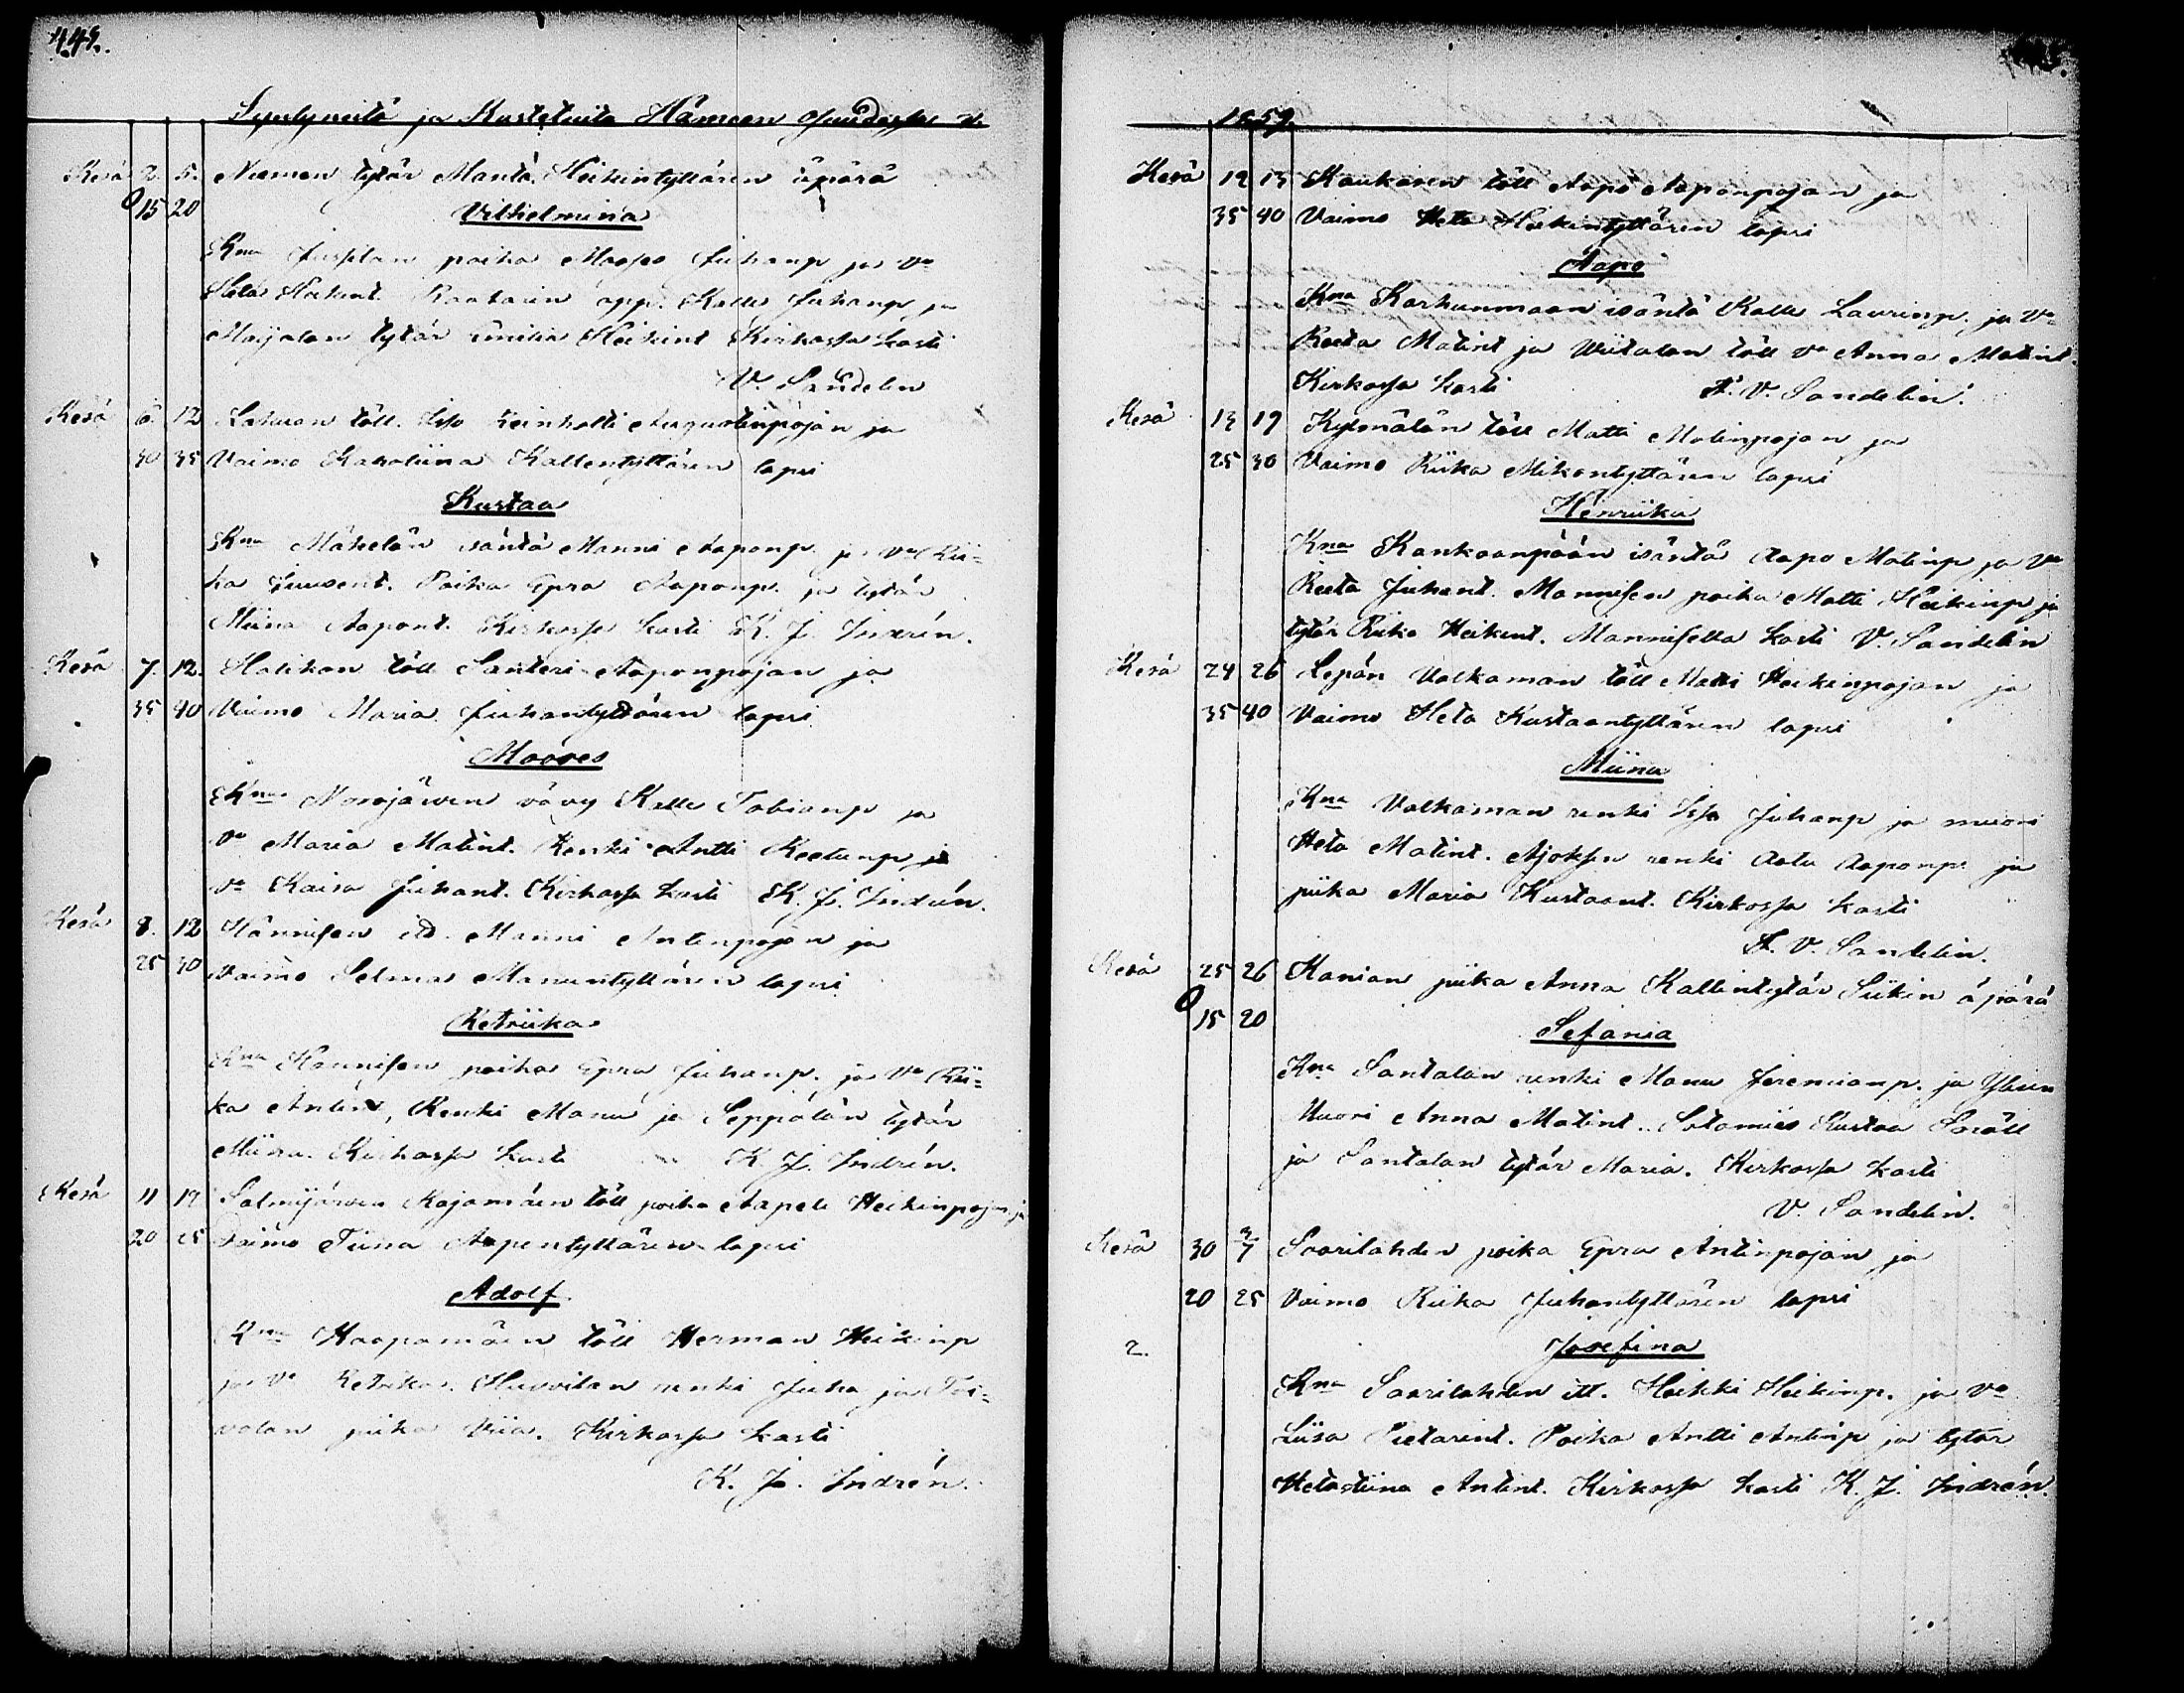 Syntyneitä ja Kastetuita Hämeen
Kesä 2. 5. Niemen tytär Manta Heikintyttären äpärä
15 20 Vilhelmina
Kna poika Mooses Juhanp ja Va
Heta Heikint. Raatarin opp. Kalle Juhanp, ja
Maijalan tytär Heikint Kirkossa kasti
V. Sandelin
Kesä 6. 12 töll. Keinholti Augustinpojan ja
30 35 Vaimo Karoliina Kallentyttären lapsi
Kustaa
Kna Mäkelän isäntä Manni Aaponp. ja Va Rii-
ka Juusent. Poika Epra Aaponp. ja tytär
Miina Aapont. Kirkossa kasti K. J. Indrén.
Kesä 7. 12. Hatikan töll Santeri Aaponpojan ja
35 40 Vaimo Maria Juhantyttären lapsi
Mooses
Kna Norojärven vävy Kalle Tobianp ja
Va Maria Matint. Renki Antti Keetunp ja
Va Kaisa Juhant. Kirkossa kasti K. J. Indrén.
Kesä 8. 12 Hännisen Manni Antinpojan ja
25 30 Vaimo Selma Manuntyttären lapsi
Retriika
Kna Hannisen poika Epra Juhanp. ja Va Rii-
ka Antint, Renki Manu ja Seppälän tytär
Miina. Kirkossa kasti K. J. Indrén.
Kesä 11 19 Salmijärven Majamäen töll poika Aapeli Heikinpojan ja
20 25 Vaimo Tiina Aapentyttären lapsi
Adolf
Kna Haapamäen töll Herman Heikinp
ja Va Retrika. Huvvilan renki Juha ja Toi-
volan piika Viia. Kirkossa kasti
K. J. Indrén.
1859.
Kesä 12 13 Kaukosen töll Aapo Aaponpojan ja
35 40 Vaimo Heta Heikintyttären lapsi
Aapo
Kna Karhunmaan isäntä Kalle Laurinp. ja Va
Reeta Matint ja Wiitalan töll Va Anna Matint.
Kirkossa kasti A. V. Sandelin.
Kesä 13 19 Kylmälän töll Matti Matinpojan ja
25 30 Vaimo Riika Mikontyttären lapsi
Henriika
Kna Kankaanpään isäntä Aapo Matinp ja Va
Reeta Juhant. Mannisen poika Matti Heikinp ja
tytär Riika Heikint. Mannisella kasti V. Sandelin
Kesä 24 26 Lepän Valkaman töll Matti Heikinpojan ja
35 40 Vaimo Heta Kustaantyttären lapsi
Miina
Kna Valkaman renki Juhanp ja muori
Heta Matint. Ajoksen renki Aatu Aaponp. ja
piika Maria Kustaant. Kirkossa kasti
A. V. Sandelin.
Kesä 25 26 Hanian piika Anna Kallentytär Siikin äpärä
15 20 Sefania
Kna Santalan renki Manu Jeremianp. ja
Muori Anna Matint. Sotamies Kustaa
ja Santalan tytär Maria. Kirkossa kasti
V. Sandelin.
Kesä 30 3/7 Saarilahden poika Epra Antinpojan ja
20 25 Vaimo Riika Juhantyttären lapsi
2. Josefina
Kna Saarilahden itl. Heikki Heikinp. ja Va
Liisa Pietarint. Poika Antti Antinp ja tytär
Hetastiina Antint. Kirkossa kasti K. J. Indrén.